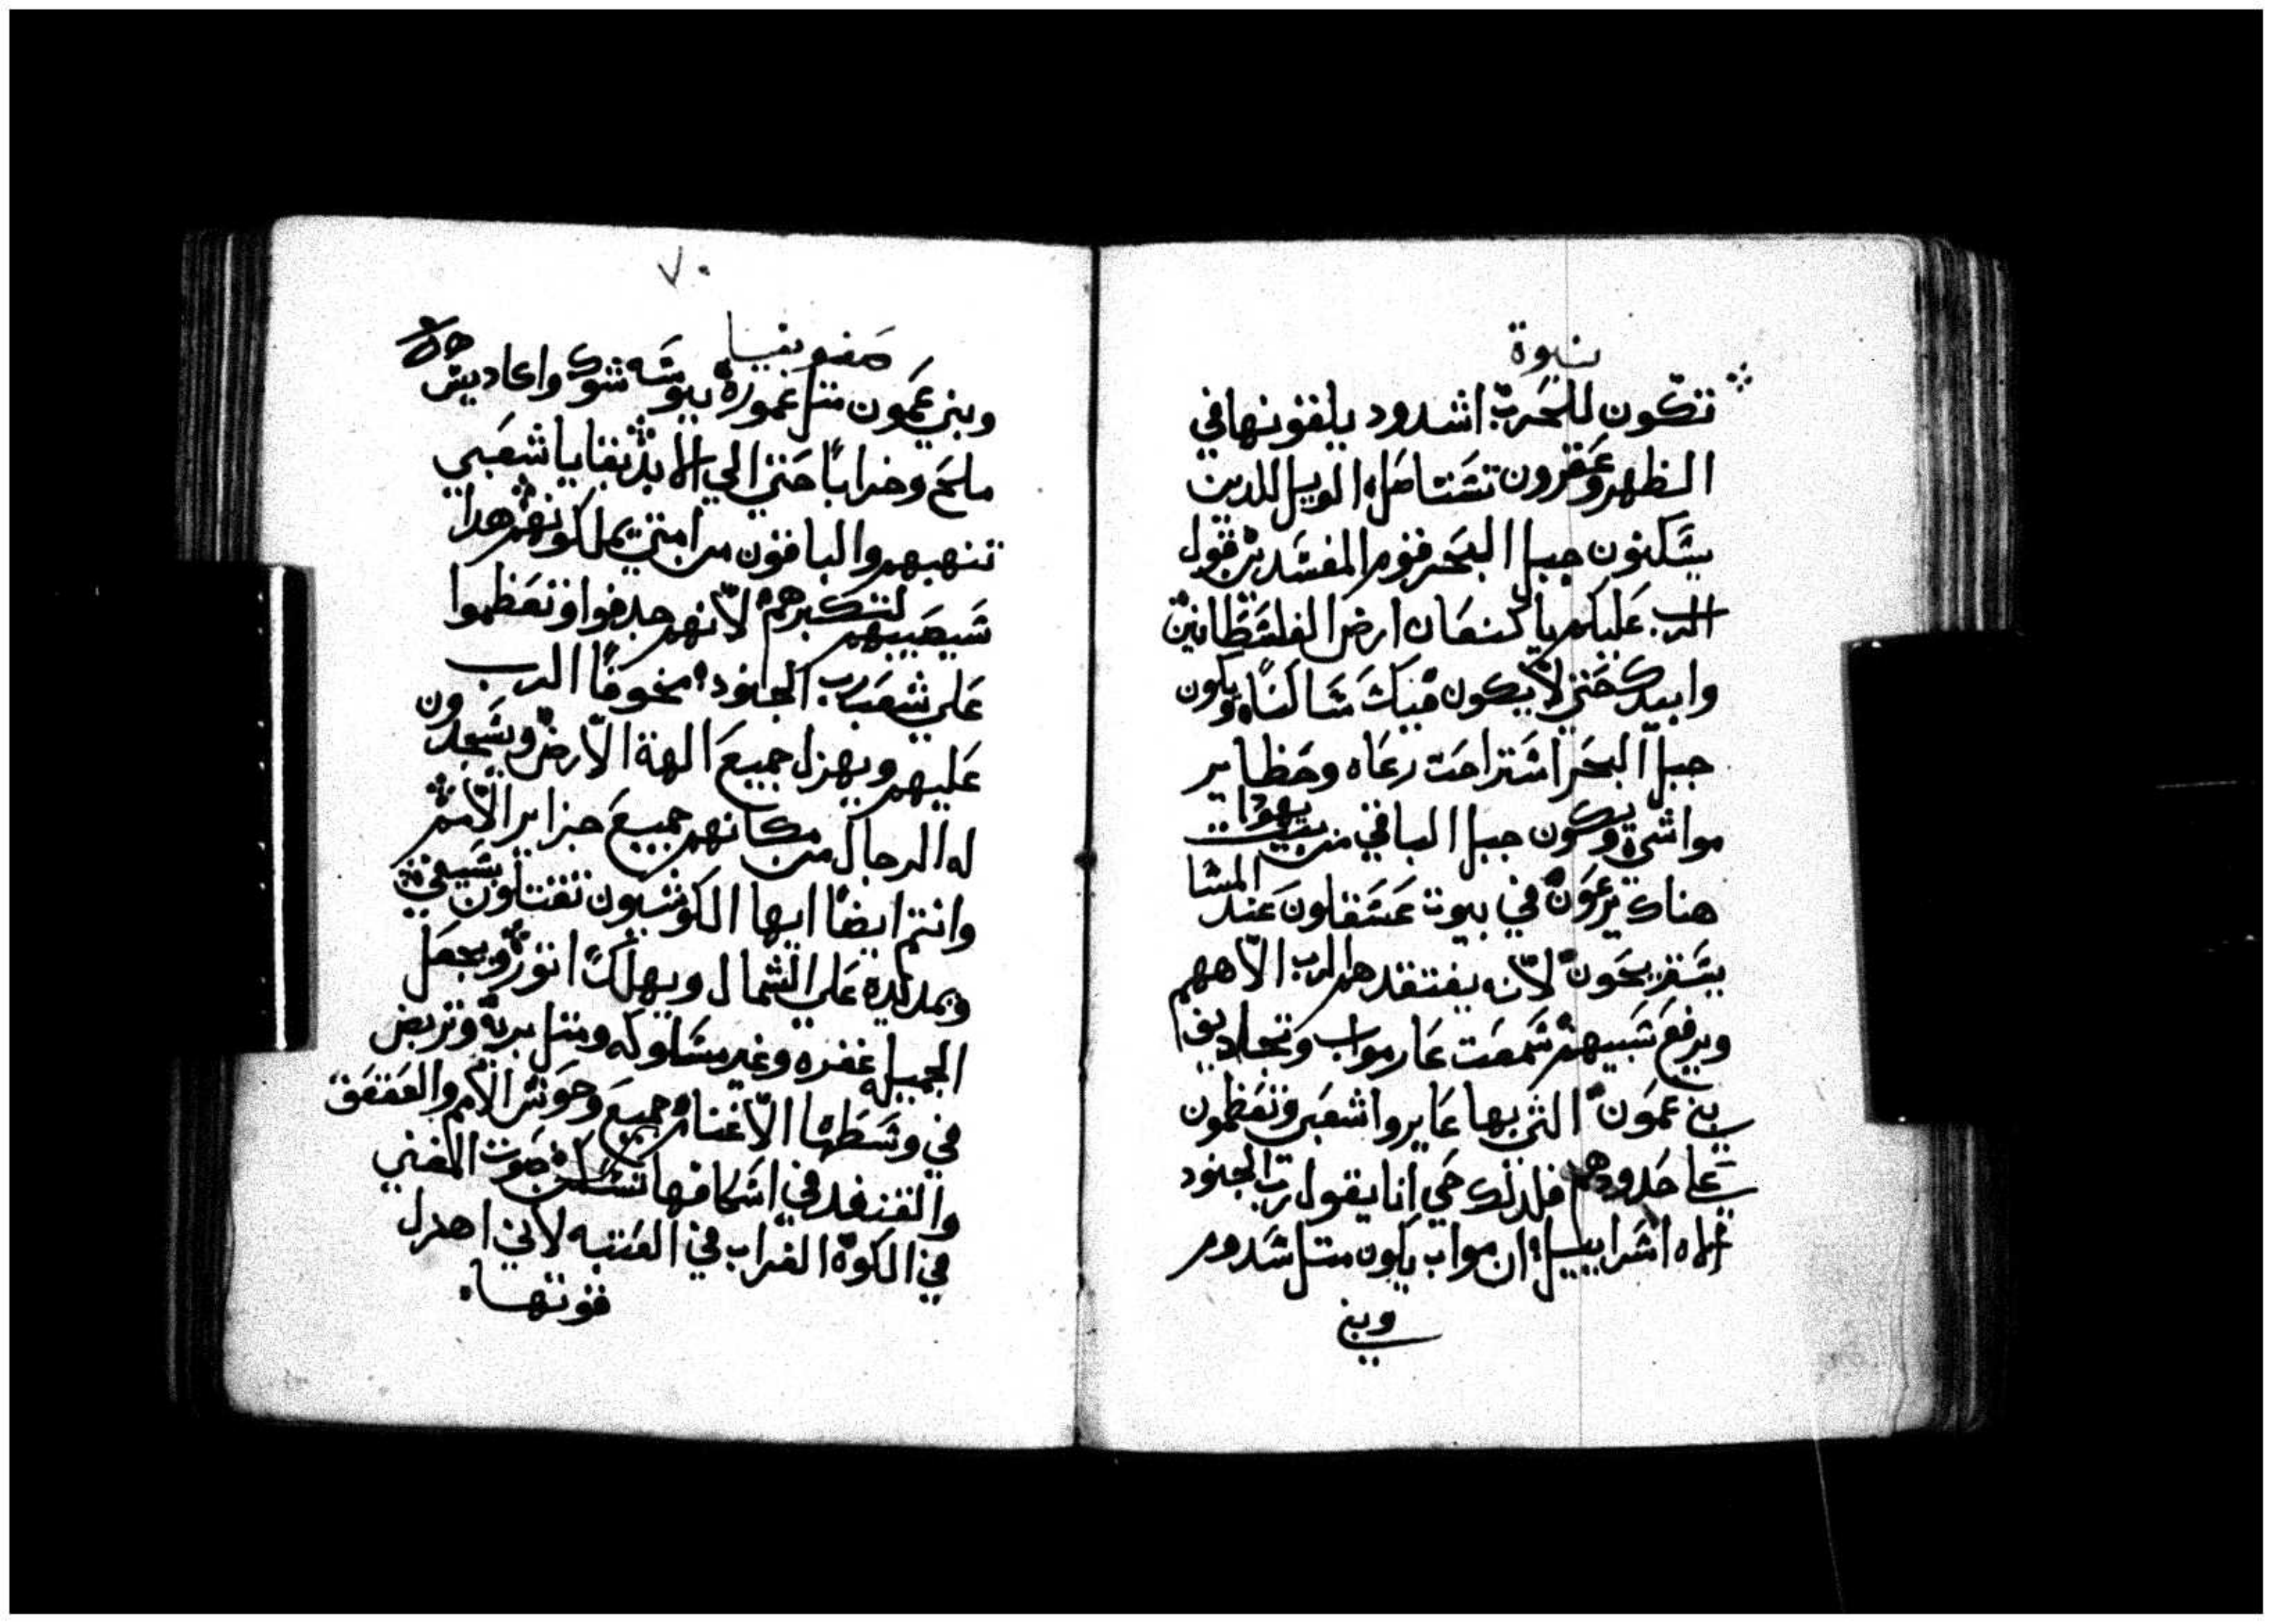 نبوة
تتكون للخرب اشدود يلقونها في
الظهر وعقرون تستاصل الويل للدين
يسكنون جبل البحر قوم المفسدين قول
الرب عليكم يا كنعان ارض الفلسطانيين
وابيدك حتي لا يكون فيك ساكنا ويكون
جبل البحر استراحت رعاه وحظاير
مواشي ويكون جبل الباقي من بيت يهودا
هناك يرعون في بيوت عسقلون عند المسا
يستريحون لانه يفتقدهم الرب الاههم
ويرفع سبيهم سمعت عار مواب وتجاديف
بني عمون التي بها عايروا شعبي وتعظمون
علي حدودهم فلدلك حي انا يقول رب الجنود
الاه اسراييل ان مواب يكون متل سدوم
وبني
٧٠
صفونيا
وبني عمون متل عموره يبوسه شوك واكاديس
ملح وخرابا حتي الي الابد بقايا شعبي
تنهبهم والباقون من امتي يملكونهم هدا
سيصيبهم لتكبرهم لانهم جدفوا وتعظموا
علي شعب رب الجنود مخوفا الرب
عليهم ويهزل جميع الهة الارض ويسجدون
له الرجال من مكانهم جميع جزاير الامم
وانتم ايضا ايها الكوشيون تقتلون بسيفي
ويمد يده علي الشمال ويهلك اتور ويجعل
الجميله قفره وغير مسلوكه ومتل بريه وتربض
في وسطها الاغنام جميع وحوش الامم والعقعق
والقنفد في اسكافها تسكن صوت المغني
في الكوة الغراب في العتبه لاني اهزل
قوتها